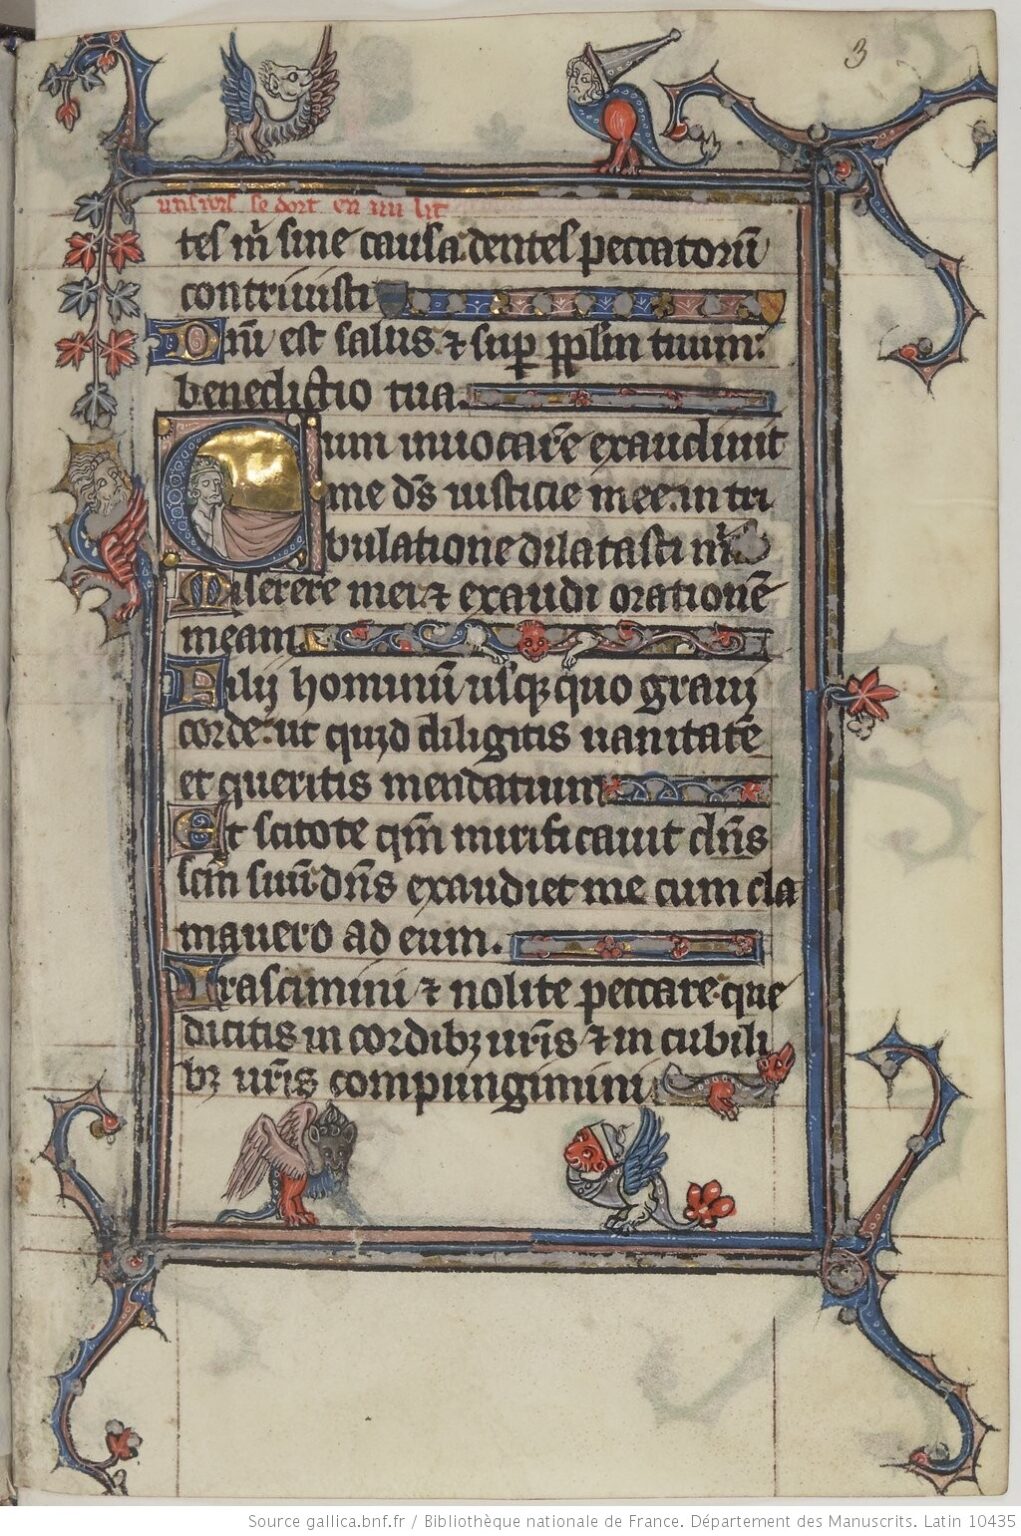 3
uns rois se dort en un lit
tes m̄ sine causa. dentes peccatorū
contriuisti
Dn̄i est salus ⁊ sup̱ pp̄lm tuum:
benedictio tua.
Cum inuocarē exaudiuit
me ds̄ iusticie mee. in tri
bulatione dilatasti m̄
Miserere mei. ⁊ exaudi orationē
meam.
Filij hominū usqꝫ quo graui
corde. ut quid diligitis uanitatē
et queritis mendatium
Et scitote qm̄ mirificauit dn̄s
scm̄ suū. dn̄s exaudiet me cum cla
mauero ad eum.
Irascimini ⁊ nolite peccare. que
dicitis in cordibꝫ ur̄is ⁊ in cubili
bꝫ ur̄is compungimini
Source gallica.bnf.fr / Bibliothèque nationale de France. Département des Manuscrits. Latin 10435